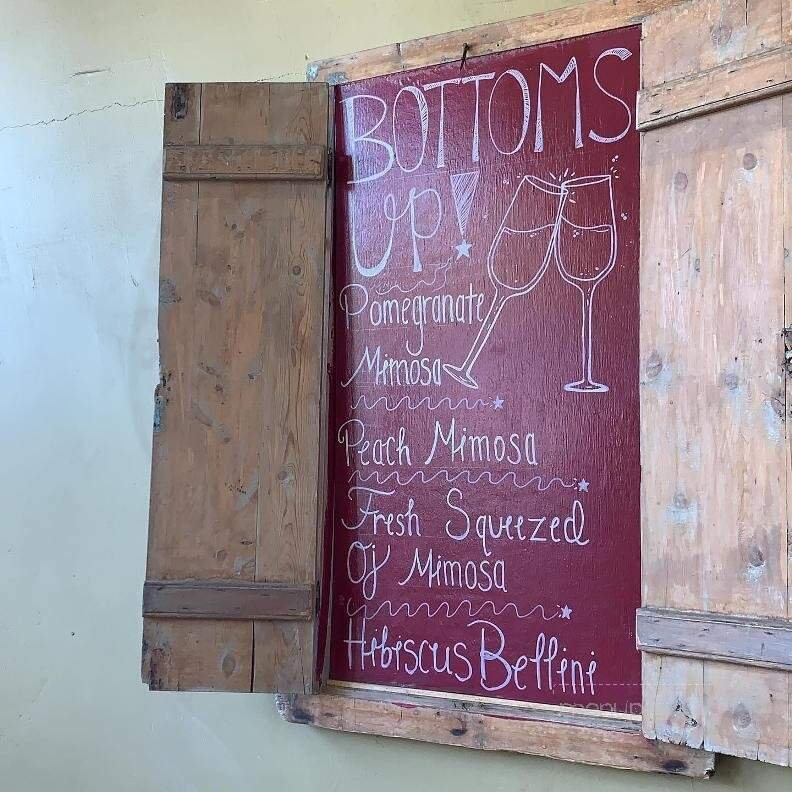 BOTTOMS
UP!
Pomegranate
Mimosa
Peach Mimosa
Fresh Squeezed
OJ Mimosa
Hibiscus Bellini